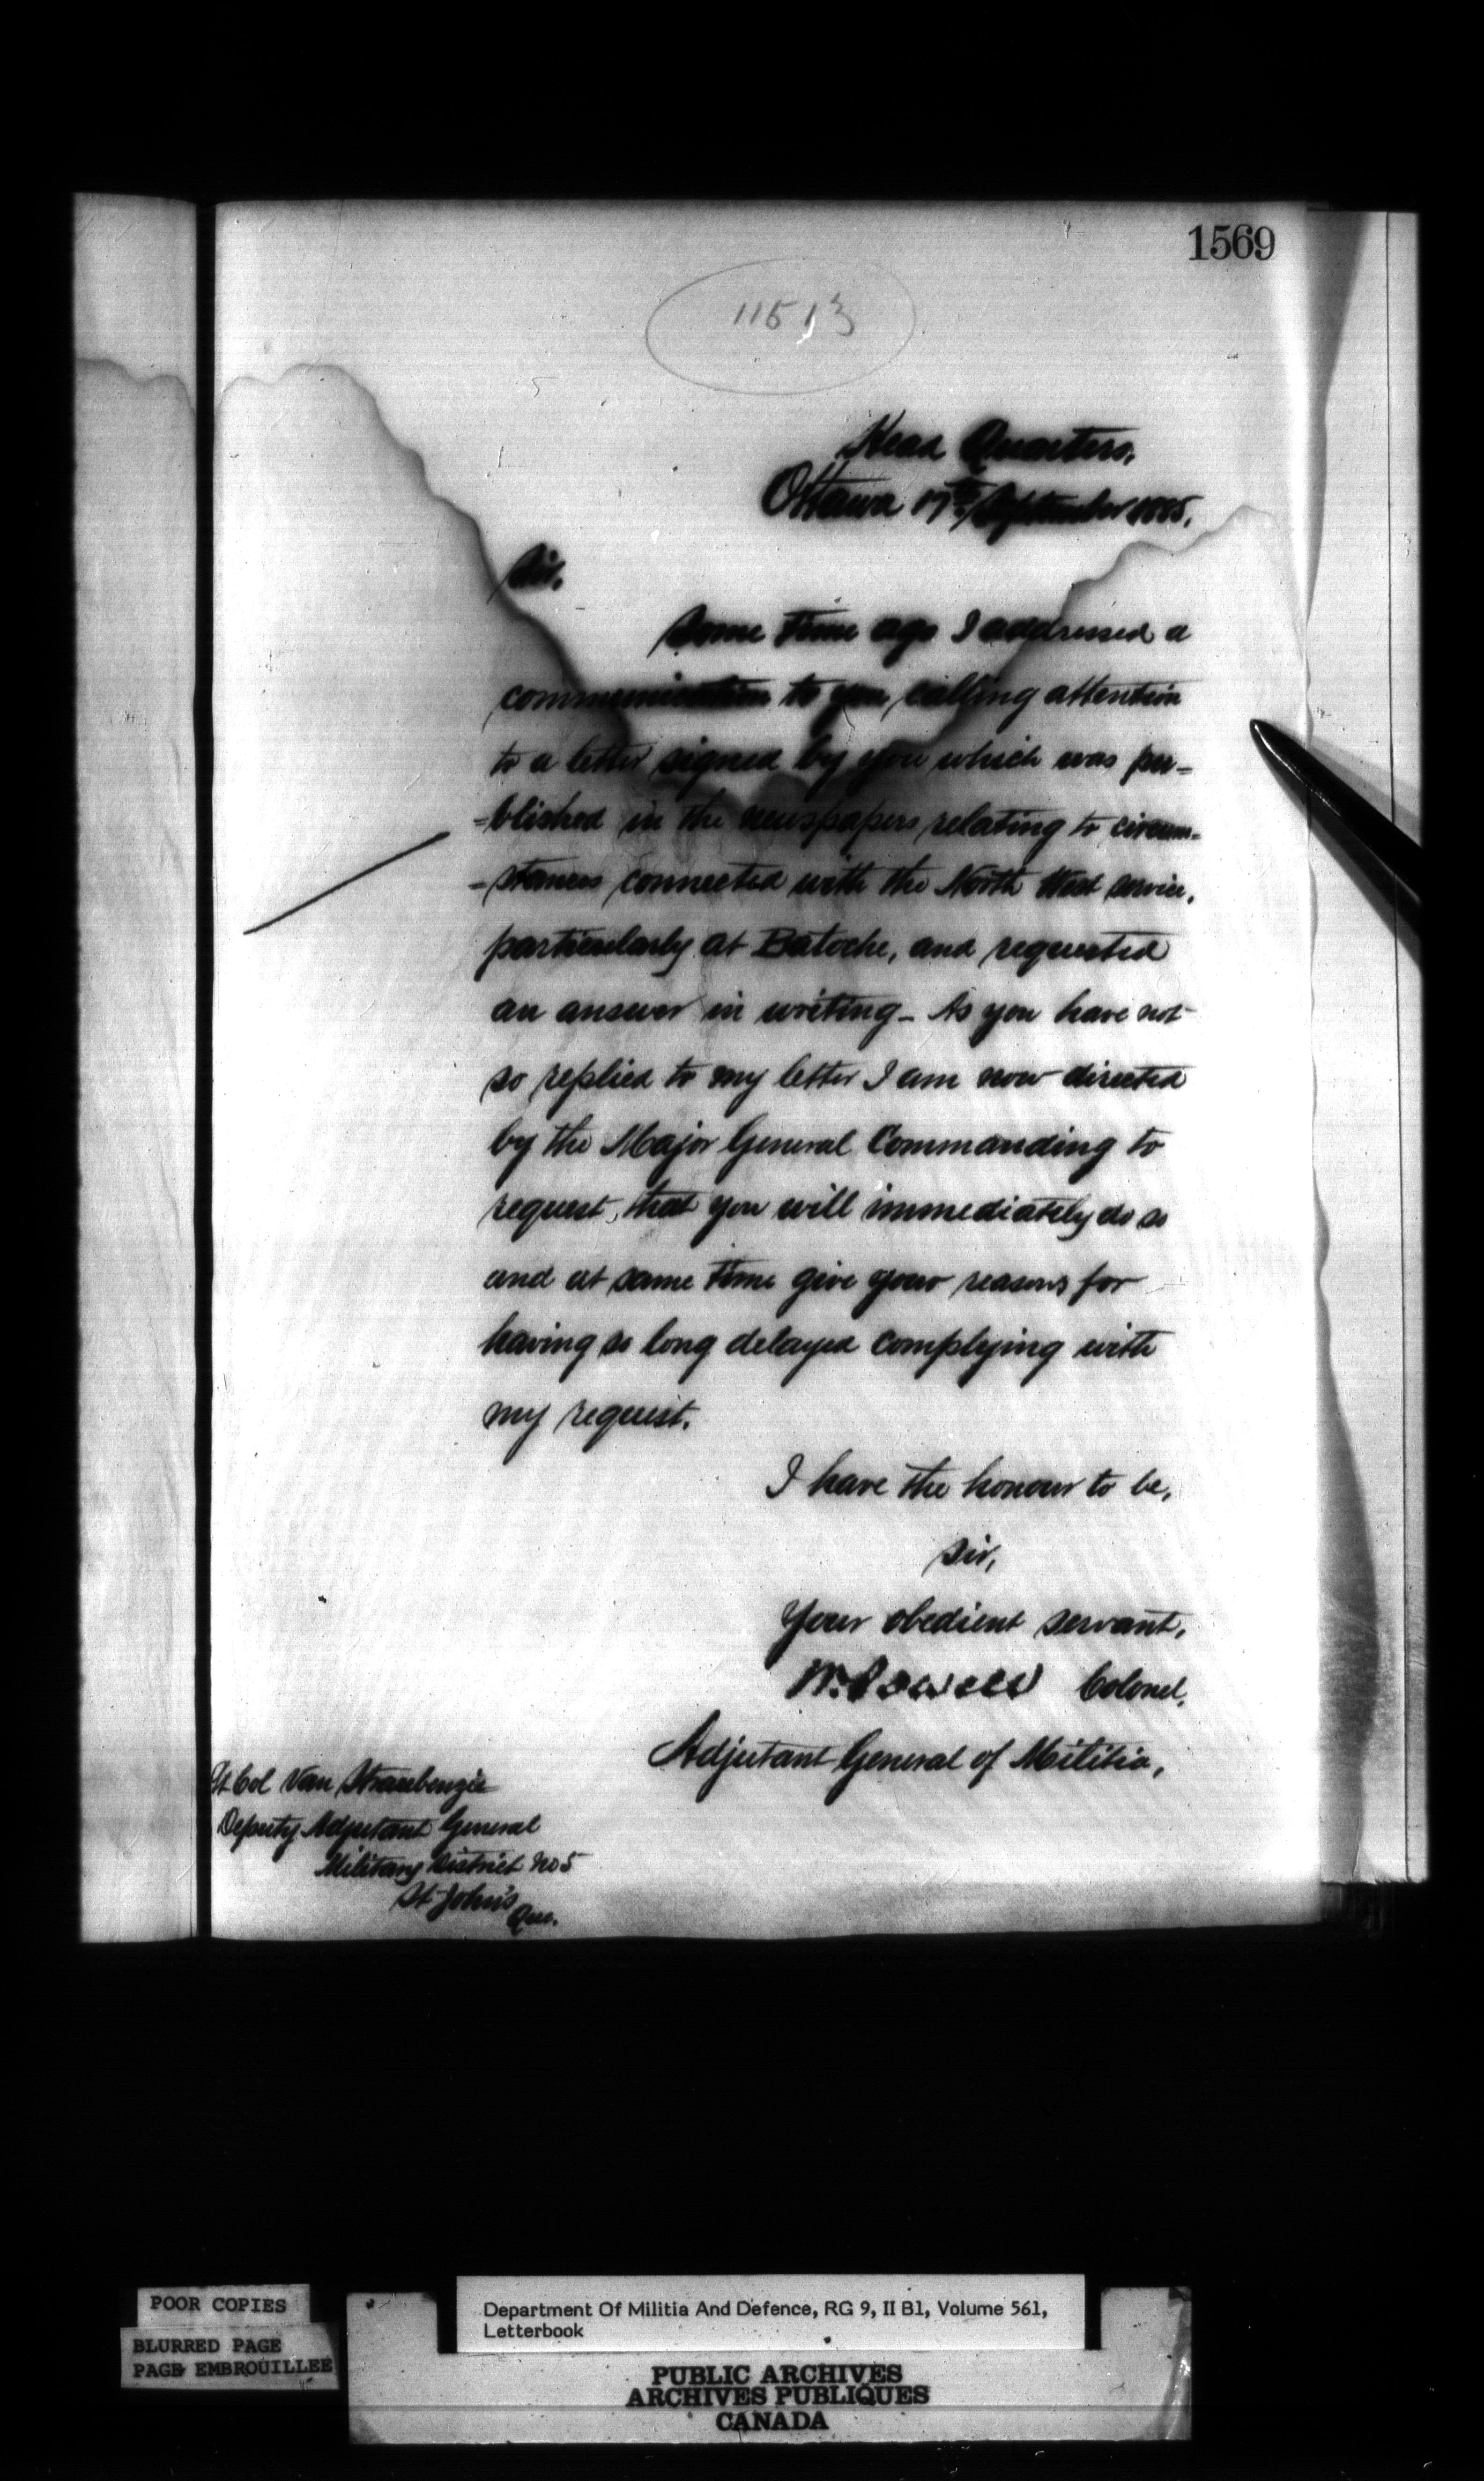 1569
11513
Head Quarters,
Ottawa 17th September 1885.
Sir,
Some time ago I addressed a
communication to you, calling attention
to a letter signed by you which was pu-
-blished in the newspapers relating to circum-
-stances connected with the North West service,
particularly at Batoche, and requested
an answer in writing - As you have not
so replied to my letter I am now directed
by the Major General Commanding to
request, that you will immediately do so
and at same time give your reasons for
having so long delayed complying with
my request.
I have the honour to be,
Sir,
Your obedient servant,
W. Powell Colonel.
Adjutant General of Militia,
Lt Col Van Straubenzie
Deputy Adjutant General
Military District No 5
St John's
Que.
POOR COPIES
BLURRED PAGE
PAGE EMBROUILLEE
Department Of Militia And Defence, RG 9, II B1, Volume 561,
Letterbook
PUBLIC ARCHIVES
ARCHIVES PUBLIQUES
CANADA